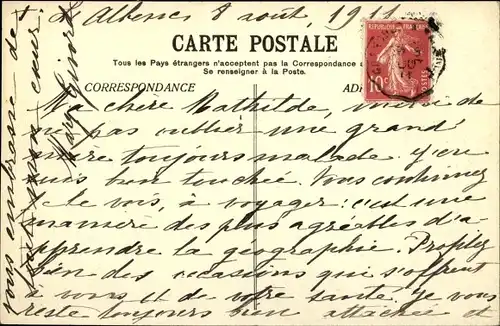 Albens 8 août, 1911
CARTE POSTALE
Tous les Pays étrangers n'acceptent pas la Correspondance
Se renseigner à la Poste.
CORRESPONDANCE
REPUBLIQUE FRANÇAISE
POSTES
10c
Ma chère Mathilde, merci de
ne pas oublier une grand'
mère toujours malade. J'en
suis bien touchée. Vous continuez
je le vois, à voyager: c'est une
manière des plus agréables d'a-
pprendre la géographie. Profitez
bien des occasions qui s'offrent
à vous et de votre santé. Je vous
reste toujours bien attachée et
vous embrasse de
tout mon cœur.